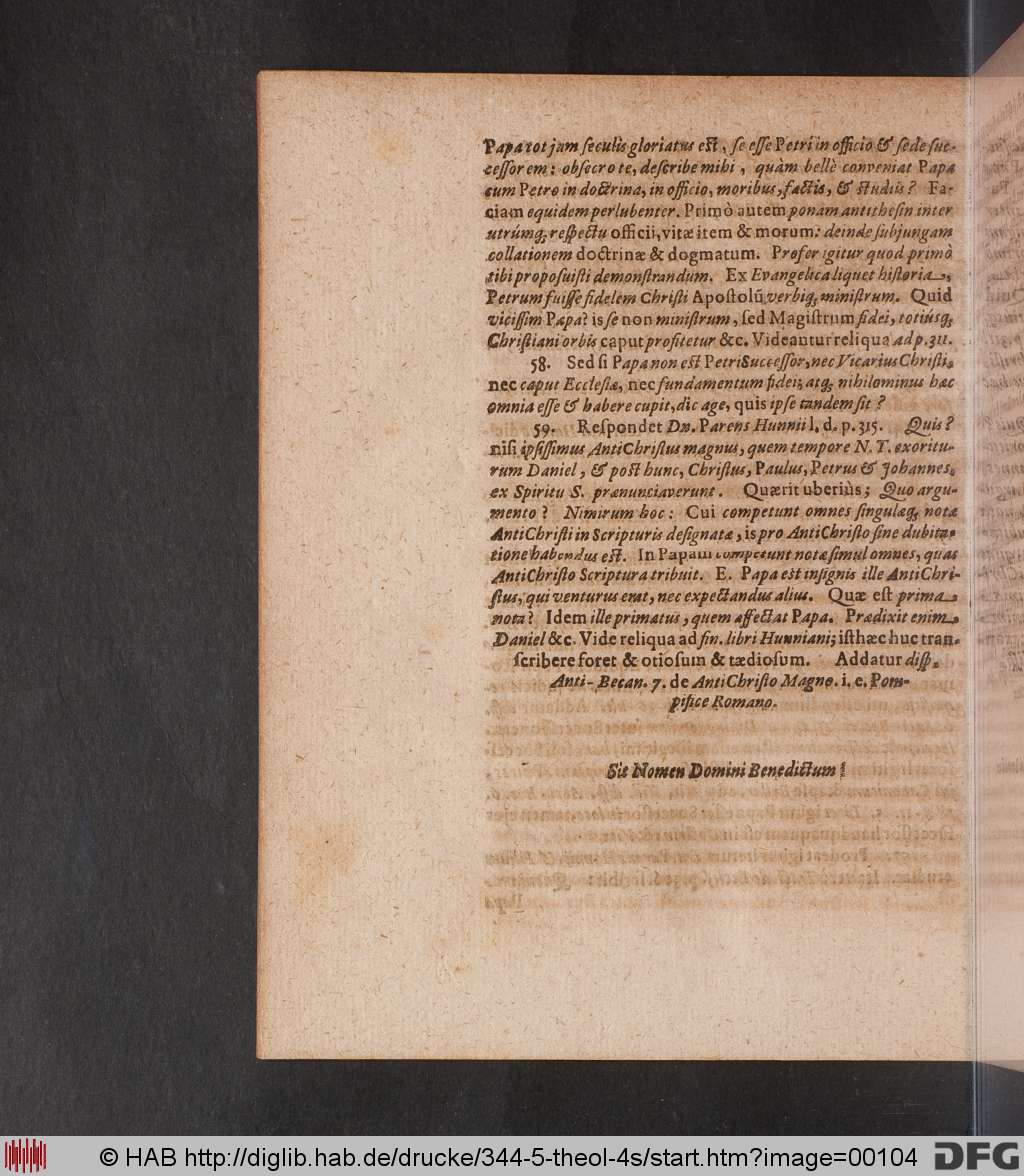 Papa tot jam ſeculis gloriatus eſt, ſe eſſe Petri in officio & ſede ſuc-
ceſſorem: obſecro te, deſcribe mihi, quàm bellè conveniat Papa
cum Petro in doctrina, in officio, moribus, factis, & ſtudiis? Fa-
ciam equidem perlubenter. Primò autem ponam antitheſin inter
utrúmq; reſpectu officii, vitæ item & morum: deinde ſubjungam
collationem doctrinæ & dogmatum. Profer igitur quod primò
tibi propoſuiſti demonſtrandum. Ex Evangelica liquet hiſtoria,
Petrum fuiſſe fidelem Chriſti Apoſtolū verbiq; miniſtrum. Quid
viciſſim Papa? is ſe non miniſtrum, ſed Magiſtrum fidei, totiúsq;
Chriſtiani orbis caput profitetur &c. Videantur reliqua ad p. 311.
58. Sed ſi Papa non eſt Petri Succeſſor, nec Vicarius Chriſti,
nec caput Eccleſiæ, nec fundamentum fidei; atq; nihilominus hæc
omnia eſſe & habere cupit, dic age, quis ipſe tandem ſit?
59. Reſpondet Dn. Parens Hunnii l. d. p. 315. Quis?
niſi ipſiſſimus AntiChriſtus magnus, quem tempore N. T. exoritu-
rum Daniel, & poſt hunc, Chriſtus, Paulus, Petrus & Johannes,
ex Spiritu S. prænunciaverunt. Quærit uberiùs; Quo argu-
mento? Nimirum hoc: Cui competunt omnes ſingulæq; notæ
AntiChriſti in Scripturis deſignatæ, is pro AntiChriſto ſine dubita-
tione habendus eſt. In Papam competunt notæ ſimul omnes, quas
AntiChriſto Scriptura tribuit. E. Papa eſt inſignis ille AntiChri-
ſtus, qui venturus erat, nec expectandus alius. Quæ eſt prima
nota? Idem ille primatus, quem affectat Papa. Prædixit enim
Daniel &c. Vide reliqua ad fin. libri Hunniani; iſthæc huc tran-
ſcribere foret & otioſum & tædioſum. Addatur diſp.
Anti-Becan. 7. de AntiChriſto Magno. i. e. Pon-
tifice Romano.
Sit Nomen Domini Benedictum!
© HAB http://diglib.hab.de/drucke/344-5-theol-4s/start.htm?image=00104
DFG